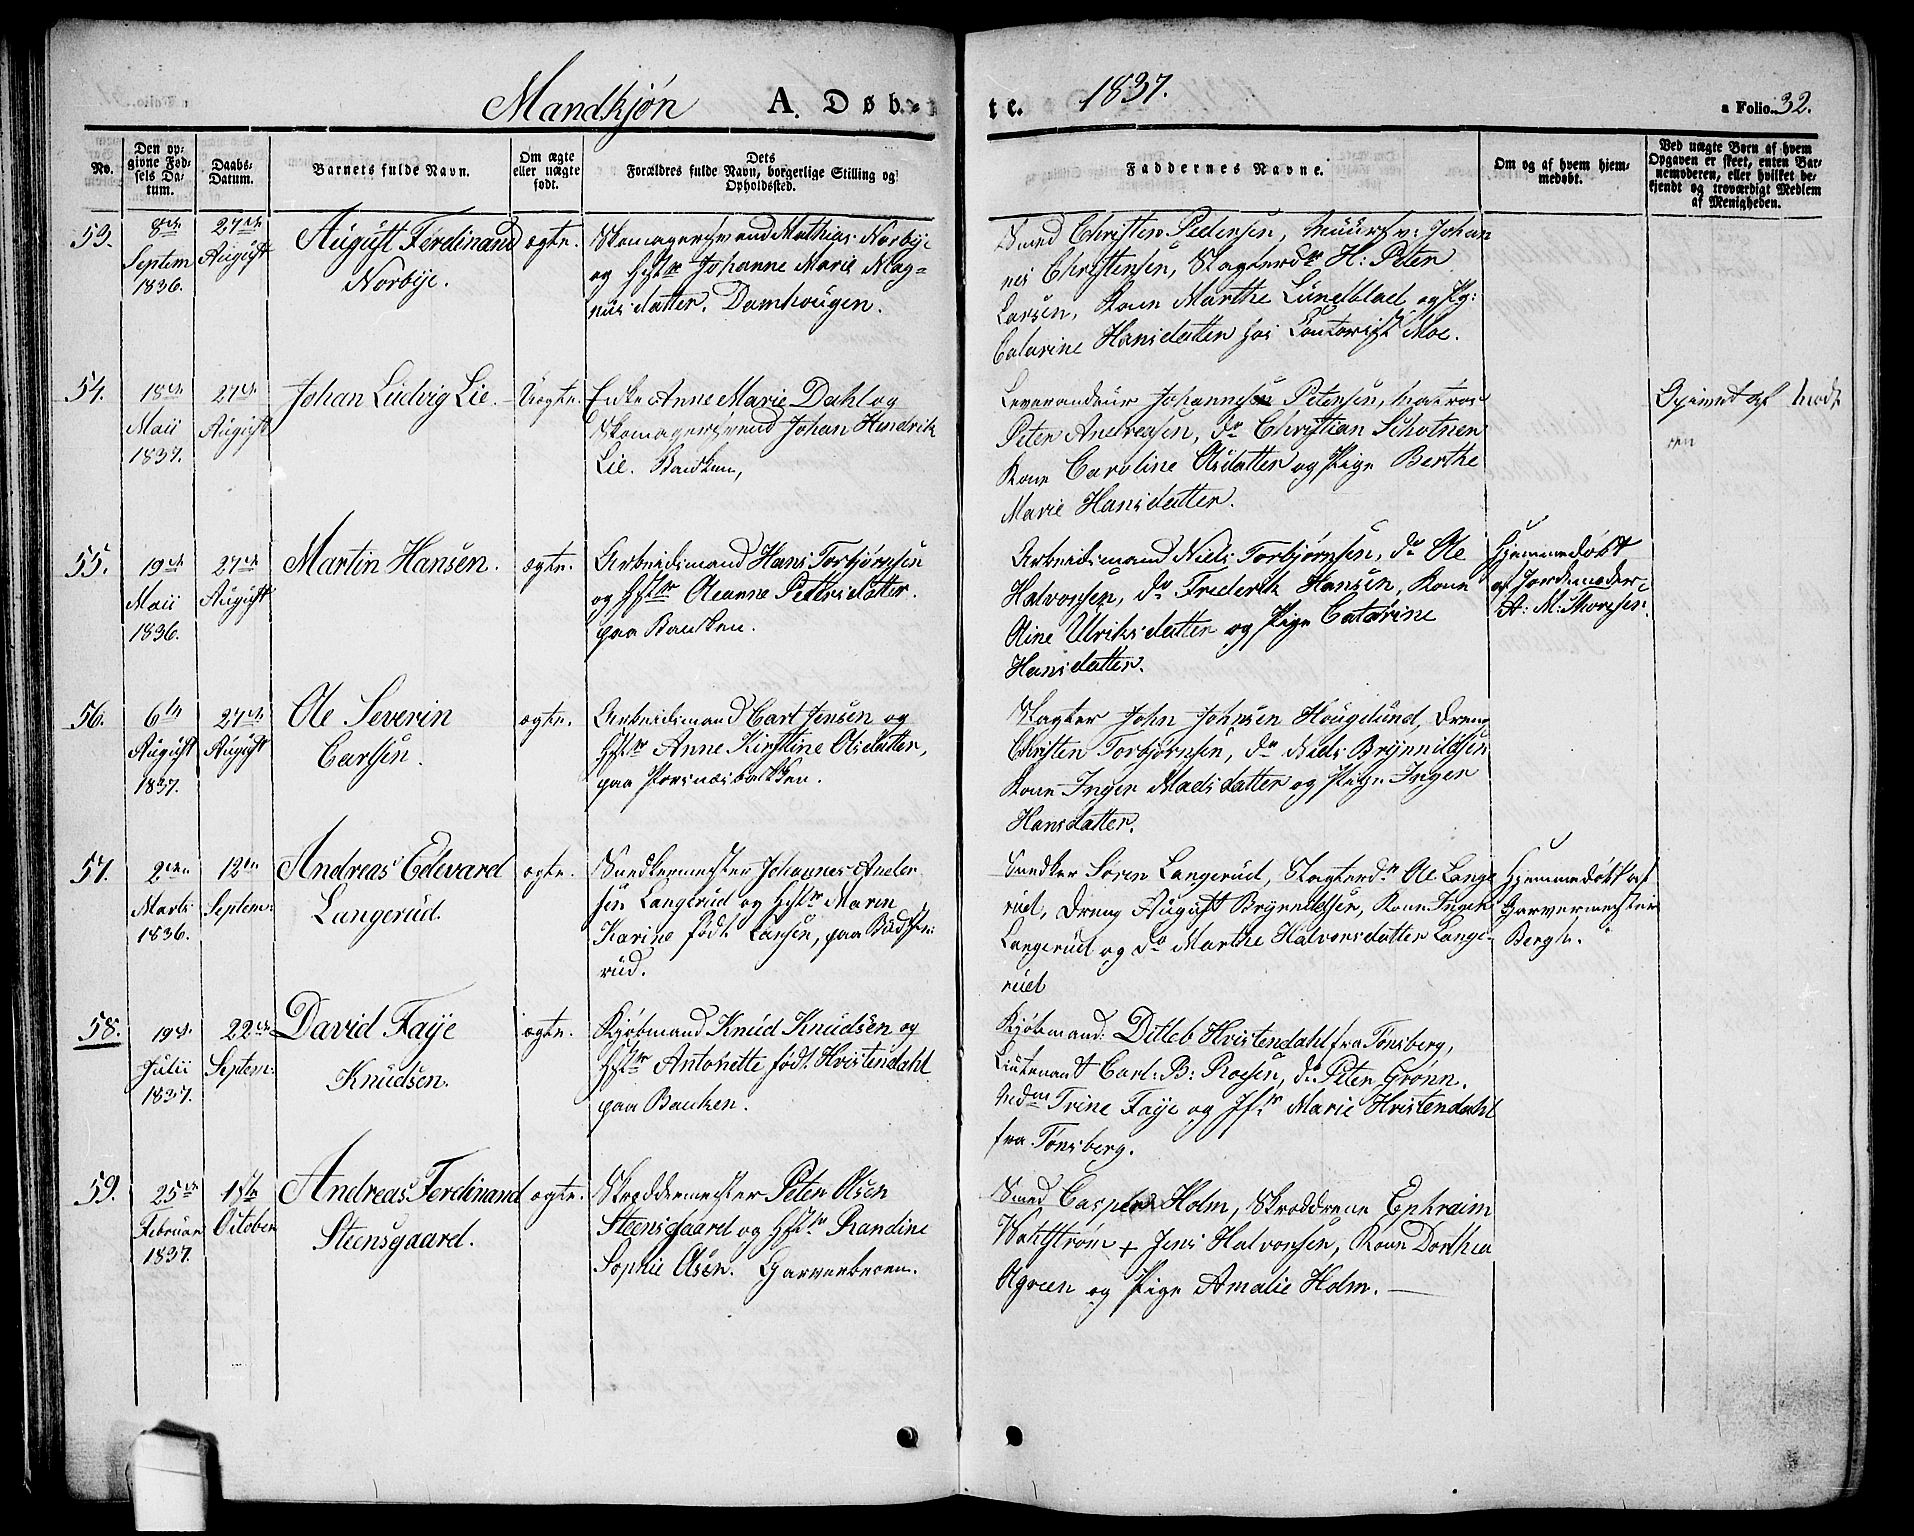 Mandkjøn A. Døb-
te. 1837. a Folio 32.
No.
Den op-
givne Fød-
sels Da-
tum.
Daabs-
Datum.
Barnets fulde Navn.
Om ægte
eller uægte
født.
Dets
Forældres fulde Navn, borgerlige Stilling og
Opholdssted.
Faddernes Navne.
Om og af hvem hjem-
medøbt.
Ved uægte Børn af hvem
Opgaven er skeet, enten Bar-
nemoderen, eller hvilket be-
kjendt og troværdigt Medlem
af Menigheden.
53.
8de
Septem
1836.
27de
August
August Ferdinand
Norbye.
ægte.
Skomagersvend Mathias Norbye
og Hstr Johanne Marie Mag-
nusdatter. Damhougen.
Smed Christen Pedersen, Muursv: Johan
nes Christensen, Slagterdr H: Peter
Larsen, Kone Marthe Lundblad og Pg:
Catarine Hansdatter hos Contorist Moe.
54.
18de
Maii
1837.
27de
August
Johan Ludvig Lie.
Uægte.
Enke Anne Marie Dahl og
Skomagersvend Johan Hendrik
Lie. Banken,
Leverandeur Johannesen Petersen, Matros
Peter Andreasen, do Christian Schotner
Kone Caroline Olsdatter og Pige Berthe
Marie Hansdatter.
Opgivet af Mode
ren
55.
19de
Maii
1836.
27de
August
Martin Hansen.
ægte.
Arbeidsmand Hans Torbjørnsen
og Hstr Oleanne Pettersdatter.
paa Banken.
Arbeidsmand Niels Torbjørnsen, do Ole
Halvorsen, do Frederik Hansen, Kone
Oline Ulriksdatter og Pige Catarine
Hansdatter.
Hjemmedøbt
af Jordemoder
A: M: Thoresen.
56.
6te
August
1837.
27de
August
Ole Severin
Carlsen.
ægte.
Arbeidsmand Carl Jensen og
Hstr Anne Kirstine Olsdatter,
paa Porsnesbakken.
Slagter John Johnsen Hougslund, Dreng
Christen Torbjørnsen, do Niels Brynnildsen
Kone Inger Madsdatter og Pige Inger
Hansdatter.
57.
2den
Marts
1836.
12te
Septem:
Andreas Edevard
Langerud.
ægte.
Snedkermester Johannes Ander
sen Langerud og Hstr Maren
Karine født Larsen, paa Bødke
rud.
Snedker Søren Langerud, Slagterdr Ole Lange
rud, Dreng August Brynnildsen, Kone Inger
Langerud og do Marthe Halvorsdatter Lange-
rud
Hjemmedøbt af
Garvermester
Bergh.
58.
19de
Julii
1837.
22de
Septem:
David Faye
Knudsen.
ægte.
Kjøbmand Knud Knudsen og
Hstr Antonette født Hvistendahl
paa Banken.
Kjøbmand: Ditleb Hvistendahl fra Tønsberg,
Lieutenant Carl: B: Roesen, do Peter Grønn.
Mdm Trine Faye og Jfr Marie Hvistendahl
fra Tønsberg.
59.
25de
Februar
1837.
1ste
October
Andreas Ferdinand
Steensgaard.
ægte.
Skreddermester Peter Olsen
Steensgaard og Hstr Randine
Sophie Olsen. Garverberen.
Smed Casper Holm, Skreddrene Ephraim
Wahlstrøm + Jens Halvorsen, Kone Dorthea
Agreen og Pige Amalie Holm.